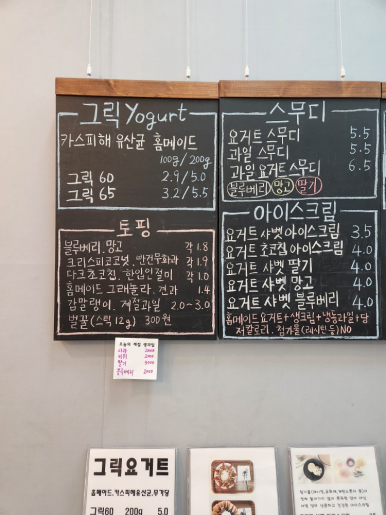 그릭 Yogurt
카스피해 유산균 홈메이드
100g/200g
그릭 60 2.9/5.0
그릭 65 3.2/5.5
토핑
블루베리.망고 각 1.8
크리스피코코넛.반건무화과 각 1.9
다크초코칩.한입인절미 각 1.0
홈메이드 그래놀라.견과 1.4
감말랭이.계절과일 2.0~3.0
벌꿀(스틱12g) 300원
스무디
요거트 스무디 5.5
과일 스무디 5.5
과일요거트 스무디 6.5
블루베리 망고 딸기
아이스크림
요거트 샤벳 아이스크림 3.5
요거트 초코칩 아이스크림 4.0
요거트 샤벳 딸기 4.0
요거트 샤벳 망고 4.0
요거트 샤벳 블루베리 4.0
홈메이드요거트+생크림+냉동과일+당
저칼로리.첨가물(레시틴 등)NO
블루베리
그릭요거트
홈메이드.카스피해유산균.무가당
60 200g 5.0